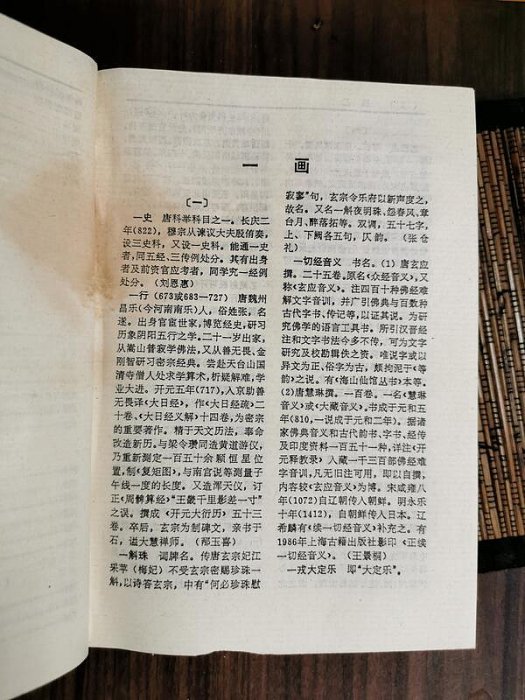 一 画
〔一〕
一史 唐科举科目之一。长庆二
年(822)，穆宗从谏议大夫殷侑奏，
设三史科，又设一史科。能通一史
者，同五经、三传例处分。其有出身
者及前资官应考者，同学究一经例
处分。（刘恩惠）
一行（673或683—727） 唐魏州
昌乐(今河南南乐)人，俗姓张。名
遂。出身官宦世家，博览经史，研习
历象阴阳五行之学。二十一岁出家，
从嵩山普寂学佛法，又从善无畏、金
刚智研习密宗经典。尝赴天台山国
清寺僧人处求学算术，析疑解难，学
业大进。开元五年(717)，入京助善
无畏译《大日经》，作《大日经疏》二
十卷、《大日经义解》十四卷，为密宗
的重要著作。精于天文历法，奉命
改造新历。与梁令瓒同造黄道游仪，
乃重新测定一百五十余颗恒星位
置，制《复矩图》，与南宫说等测量子
午线一度的长度。又造浑天仪，订
正《周髀算经》“王畿千里影差一寸”
之误。撰成《开元大衍历》，五十三
卷。卒后，玄宗为制碑文，亲书于
石，谥大慧禅师。（邵玉喜）
一斛珠 词牌名。传唐玄宗妃江
采苹（梅妃）不受玄宗密赐珍珠一
斛，以诗答玄宗，中有“何必珍珠慰
寂寥”句，玄宗令乐府以新声度之，
故名。又名一解夜明珠、怨春风、章
台月、醉落拓等。双调，五十七字，
上、下阕各五句，仄韵。（张仓
礼）
一切经音义 书名。(1)唐玄应
撰。二十五卷。原名《众经音义》，又
称《玄应音义》。注四百十种佛经难
解文字音训，并广引佛典与百数种
古代字书、传记等，以证其说。为研
究佛学的语言工具书。所引汉晋经
注和文字书法今多不传，可为文字
研究及校勘辑佚之资。唯说字或以
异文为正、俗字为古，颇拘泥于《等
韵》之说。有《海山仙馆丛书》本等。
(2)唐慧琳撰。一百卷。一名《慧琳
音义》或《大藏音义》。书成于元和五
年(810，一说成于元和二年)。据诸
家佛典音义和古代韵书、字书、经传
及印度资料一百五十一种，详注《开
元释教录》入藏一千三百部佛经难
字音训，凡无旧注可用，即以自撰，
内容较《玄应音义》为博。宋咸雍八
年(1072)自辽朝传入朝鲜。明永乐
十年(1412)，自朝鲜传入日本。辽
希麟有《续一切经音义》补充之。有
1986年上海古籍出版社影印《正续
一切经音义》。（王景桐）
一戎大定乐 即“大定乐”。